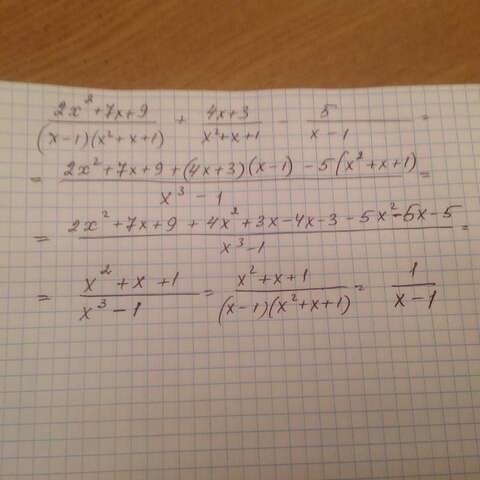 (2x²+7x+9)/((x-1)(x²+x+1)) + (4x+3)/(x²+x+1) - 5/(x-1) =
= (2x²+7x+9+(4x+3)(x-1)-5(x²+x+1))/(x³-1) =
= (2x²+7x+9+4x²+3x-4x-3-5x²-5x-5)/(x³-1) =
= (x²+x+1)/(x³-1) = (x²+x+1)/((x-1)(x²+x+1)) = 1/(x-1)